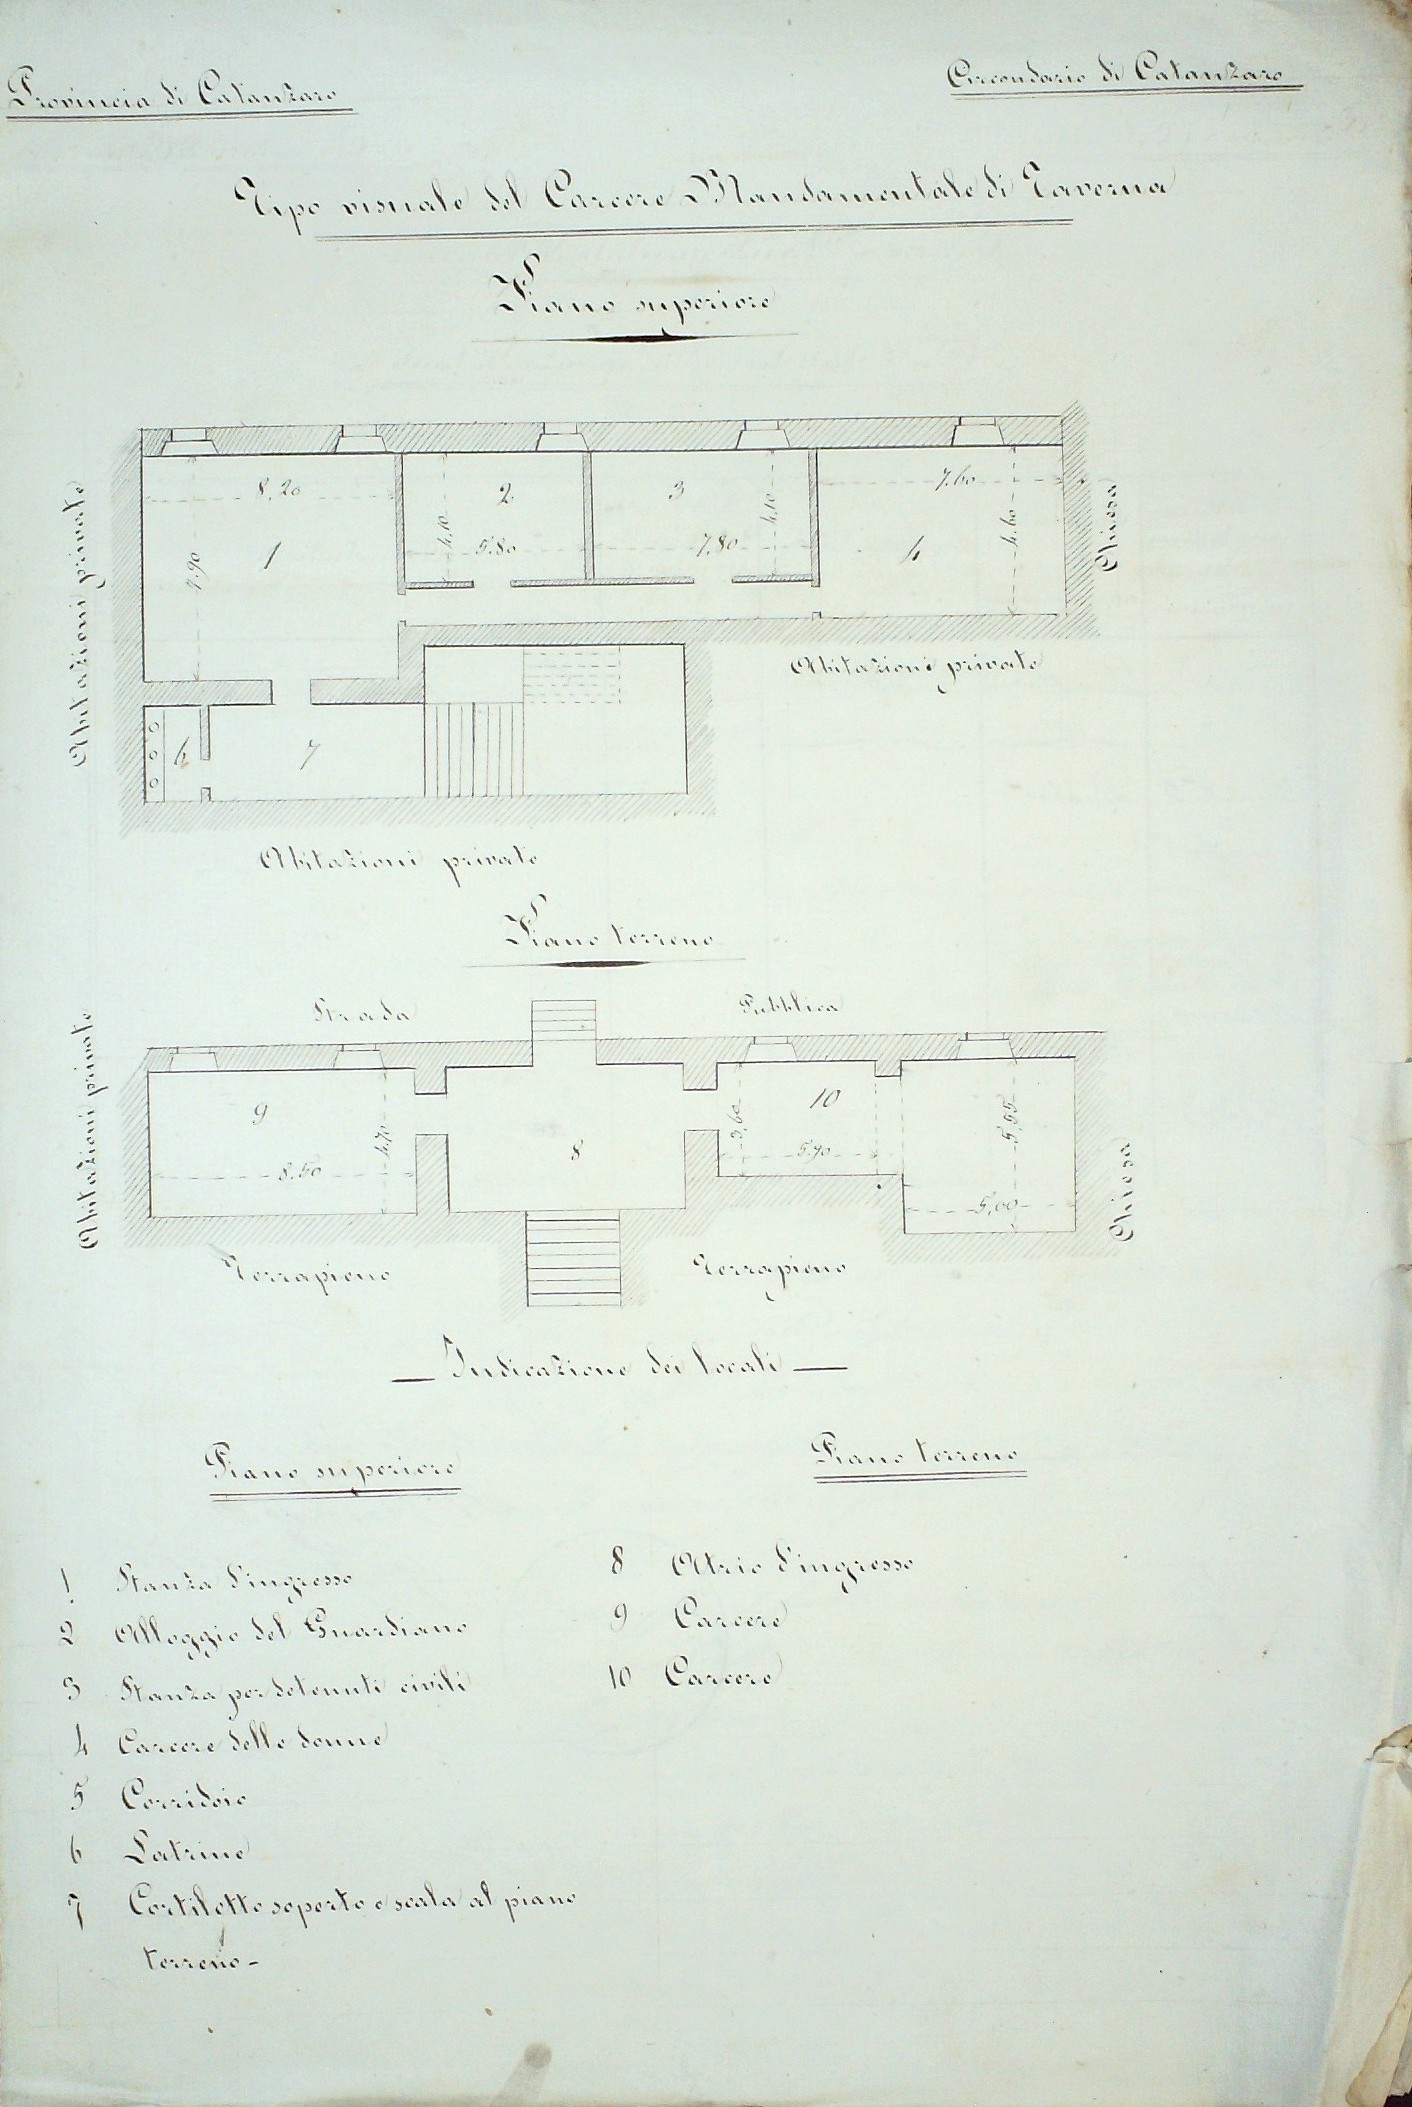 Provincia di Catanzaro
Circondario di Catanzaro
Tipo visuale del Carcere Mandamentale di Taverna
Piano superiore
8,20
2
3
7,60
4,10
4,10
4,60
1
5.80
7,80
4
7.90
Abitazioni private
Chiesa
Abitazioni private
6
7
Abitazioni private
Piano terreno
Strada
Pubblica
9
10
4.70
3,60
5,55
8
5.90
8.50
5,00
Abitazioni private
Chiesa
Terrapieno
Terrapieno
Indicazione dei locali
Piano superiore
1 Stanza d'ingresso
2 Alloggio del Guardiano
3 Stanza per detenuti civili
4 Carcere delle donne
5 Corridoio
6 Latrine
7 Cortiletto scperto e scala al piano
terreno -
Piano terreno
8 Atrio d'ingresso
9 Carcere
10 Carcere